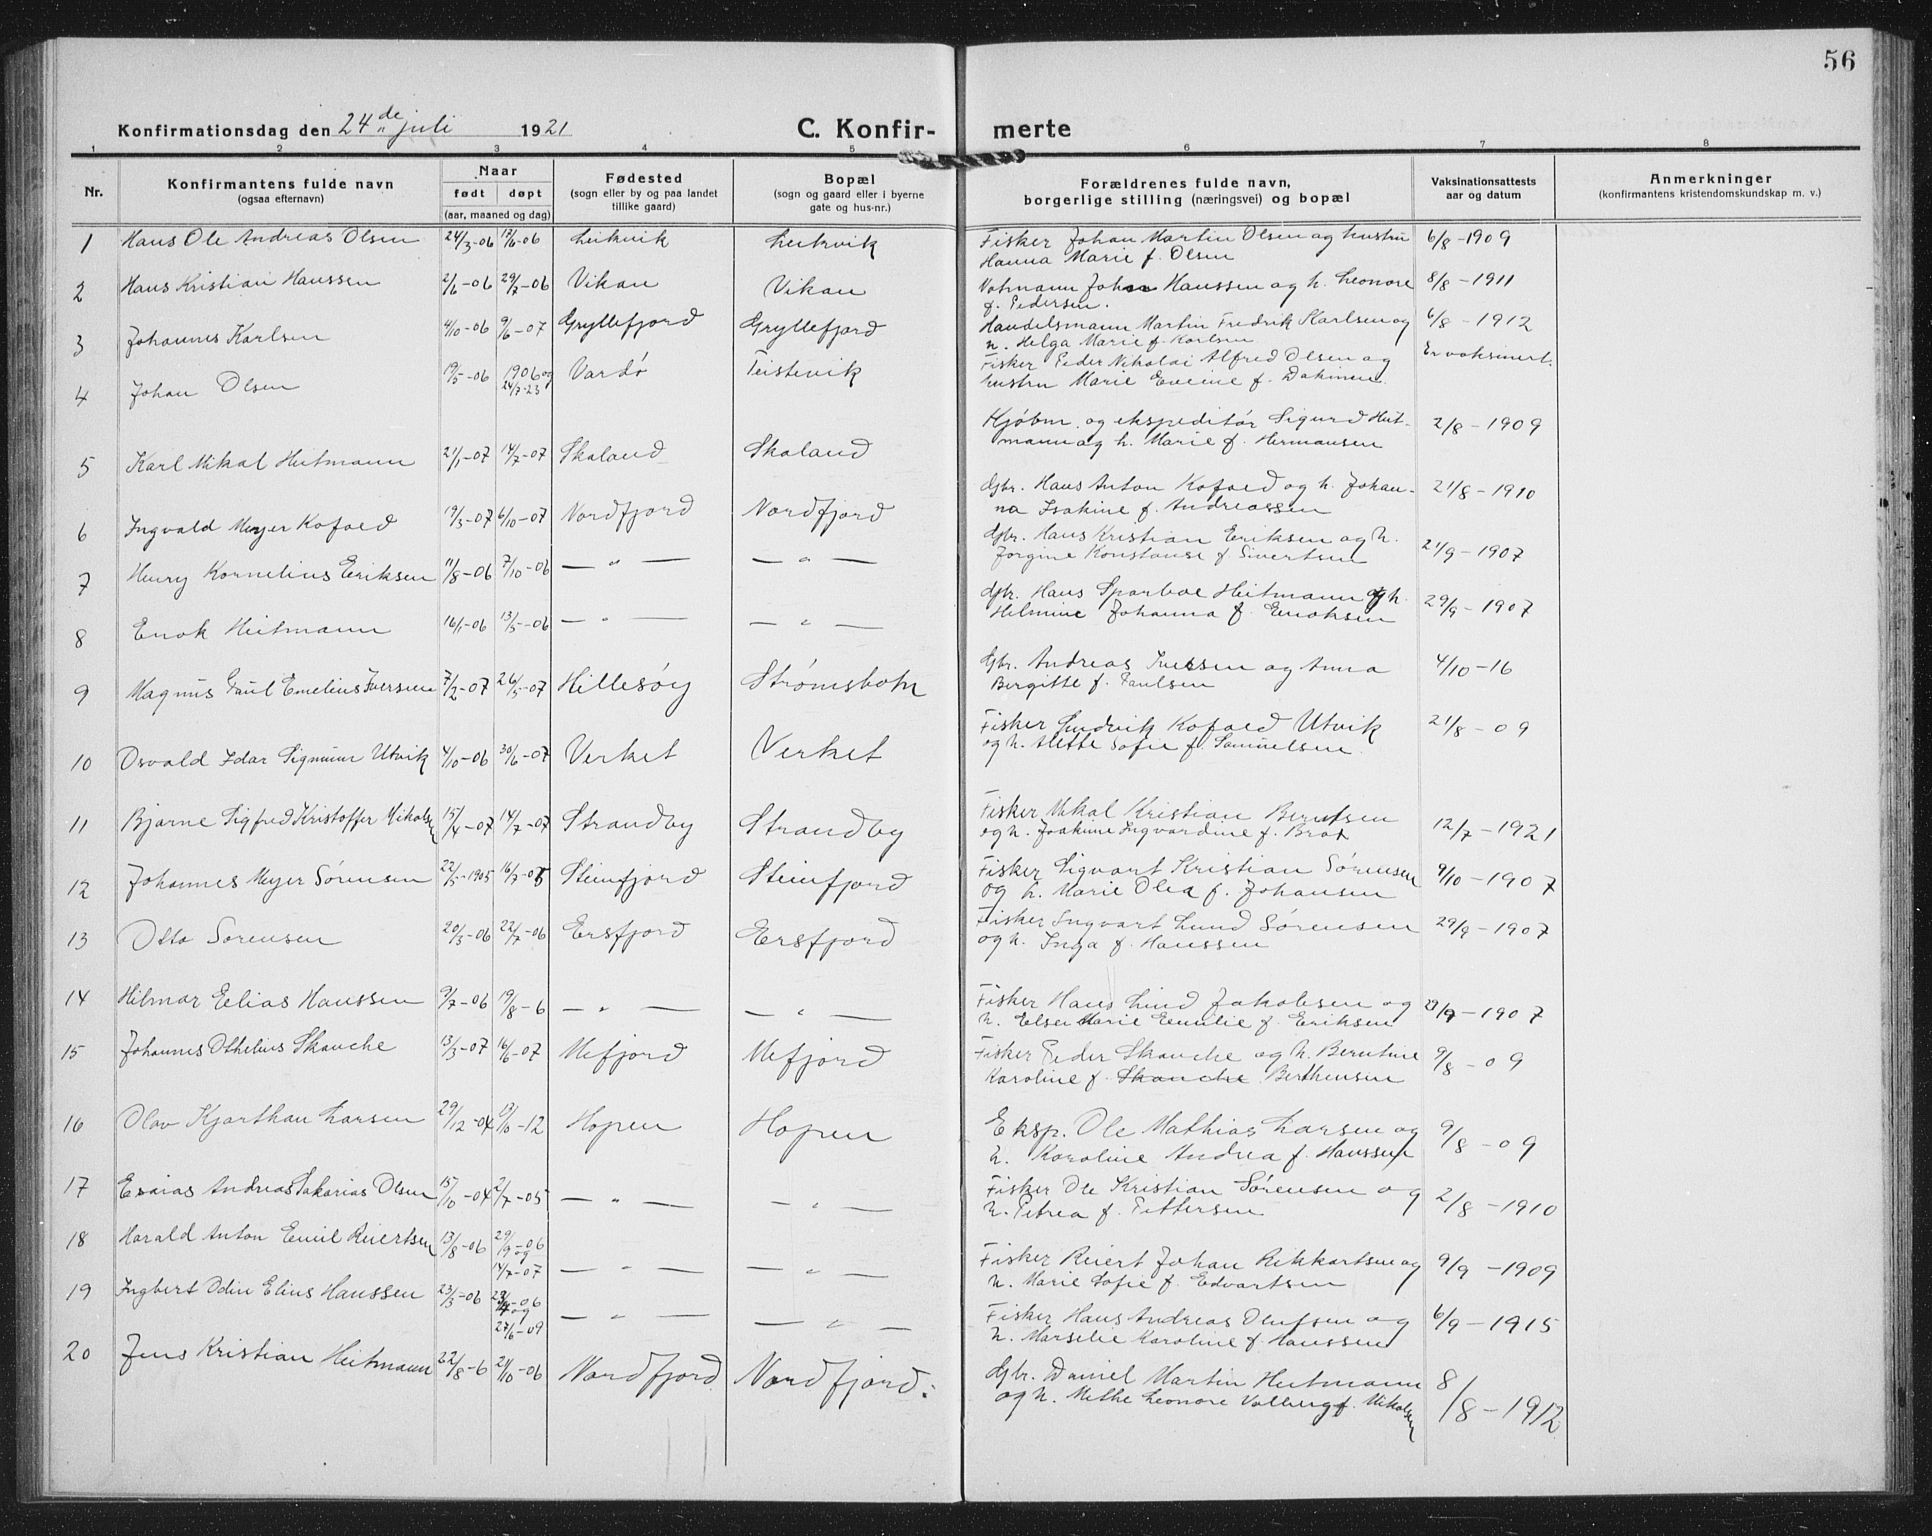 56
Konfirmationsdag den 24de juli 1921 C. Konfir- merte
1 2 3 4 5 6 7 8
Nr. Konfirmantens fulde navn (ogsaa efternavn) Naar født døpt (aar, maaned og dag) Fødested (sogn eller by og paa landet tillike gaard) Bopæl (sogn og gaard eller i byerne gate og hus-nr.) Forældrenes fulde navn, borgerlige stilling (næringsvei) og bopæl Vaksinationsattests aar og datum Anmerkninger (konfirmantens kristendomskundskap m. v.)
1 Hans Ole Andreas Olsen 24/3-06 17/6-06 Leikvik Leikvik Fisker Johan Martin Olsen og hustru 6/8-1909
Hanna Marie f. Olsen
2 Hans Kristian Hanssen 2/6-06 29/7-06 Vikan Vikan Johan Hanssen og h. Leonore 8/8-1911
f. Pedersen.
3 Johannes Karlsen 4/10-06 9/6-07 Gryllefjord Gryllefjord Handelsmann Martin Fredrik Karlsen og 6/8-1912
h. Helga Marie f. Karlsen
4 Johan Olsen 19/5-06 1906 og 24/7-23 Vardø Teistevik Fisker Peder Nikolai Alfred Olsen og Er vaksinert.
hustru Marie Eveine f. Dakinen
5 Karl Mikal Heitmann 21/1-07 14/7-07 Skaland Skaland Kjøbm. og ekspeditør Sigurd Heit- 2/8-1909
mann og h. Marie f. Hermansen
6 Ingvald Meyer Kofoed 19/3-07 6/10-07 Nordfjord Nordfjord Gbr. Hans Anton Kofoed og h. Johan- 21/8-1910
na Isakine f. Andreassen
7 Henry Kornelius Eriksen 11/8-06 7/10-06 — " — — " — Gbr. Hans Kristian Eriksen og h. 21/9-1907
Jorgine Konstanse f. Sivertsen
8 Enok Heitmann 16/1-06 13/5-06 — " — — " — Gbr. Hans Sparboe Heitmann og h. 29/9-1907
Helmine Johanna f. Enoksen
9 Magnus Paul Emelius Iversen 7/2-07 26/5-07 Hillesøy Strømsbotn Gbr. Andreas Iversen og Anna 4/10-16
Bergitte f. Paulsen
10 Osvald Idar Sigmunr Utvik 4/10-06 30/6-07 Verket Verket Fisker Ludvik Kofoed Utvik 21/8-09
og h. Alette Sofie f. Samuelsen
11 Bjarne Sigfred Kristoffer Mikalsen 15/4-07 14/7-07 Strandby Strandby Fisker Mikal Kristian Berntsen 12/7-1921
og h. Joakine Ingvardine f. Brox
12 Johannes Meyer Sørensen 22/5-1905 16/7-05 Steinfjord Steinfjord Fisker Sigvart Kristian Sørensen 9/10-1907
og h. Marie Olea f. Johansen
13 Otto Sørensen 20/3-06 22/7-06 Ersfjord Ersfjord Fisker Ingvart Lund Sørensen 29/9-1907
og h. Inga f. Hanssen
14 Hilmar Eelias Hanssen 9/7-06 19/8-6 — " — — " — Fisker Hans Lind Jakobsen og 29/9-1907
h. Elser Marie Emilie f. Eriksen
15 Johannes Othelius Skanche 13/3-07 16/6-07 Mefjord Mefjord Fisker Peder Skanche og h. Berntine 9/8-09
Karoline f. Skanche Berthensen
16 Olav Kjarthan Larsen 29/12-04 13/10-12 Hopen Hopen Eksp. Ole Mathias Larsen og 9/8-09
h. Karoline Andrea f. Hanssen
17 Esaias Andreas Sakarias Olsen 15/10-04 2/7-05 — " — — " — Fisker Ole Kristian Sørensen og 2/8-1910
h. Petrea f. Pettersen
18 Harald Anton Emil Reiertsen 13/8-06 29/9-06 og 14/7-07 — " — — " — Fisker Reiert Johan Rikkartsen og 9/9-1909
h. Marie Sofie f. Edvartsen
19 Ingbert Odin Elius Hanssen 23/3-06 -06 og 27/6-09 — " — — " — Fisker Hans Andreas Olufsen og 6/9-1915
h. Marselie Karoline f. Hanssen
20 Jens Kristian Heitmann 22/8-6 21/10-06 Nordfjord Nordfjord. Gbr. Daniel Martin Heitmann 8/8-1912
og h. Methe Leonore Valberg f. Mikalsen